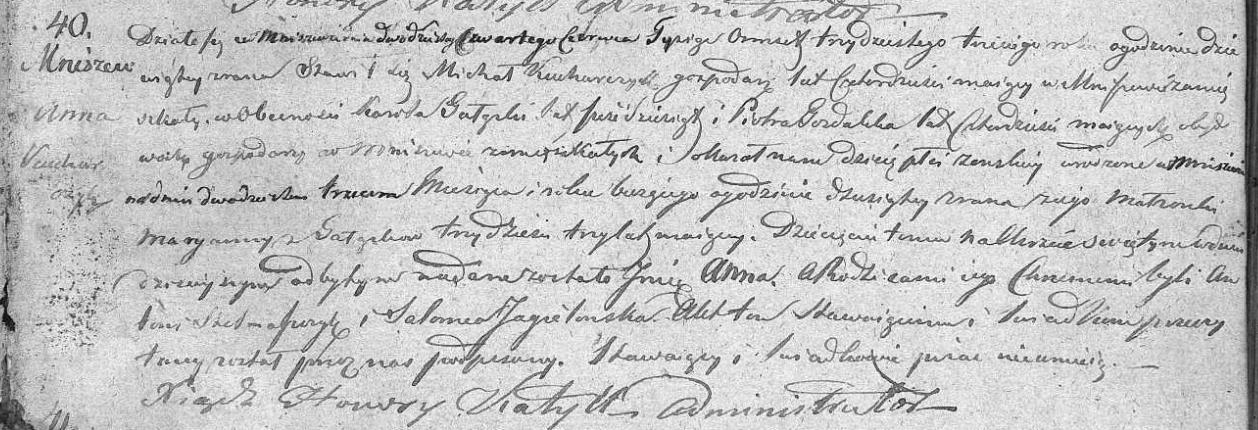 40.
Mniszew
Anna
Kuchar
czyk
Działo się w Mniszewie dnia dwudziestego Czwartego Czerwca Tysiąc Ośmset trzydziestego trzeciego roku o godzinie dzie
wiątey zrana Stawił się Michał Kucharczyk gospodarz lat Czterdzieści maiący w Mniszewie zamię
szkały, w Obecności Karola Gałązki lat pięćdziesiąt i Piotra Gozdalika lat Czterdzieści maiących obyd
wóch gospodarzy w Mniszewie zamięszkałych i okazał nam dziecię płci żenskiey urodzone w Mniszewie
na dniu dwudziestem trzecim Miesiąca i roku bieżącego o godzinie dziesiątey zrana z iego Małzonki
Maryanny z Gałązków trzydzieści trzy lat maiącey. Dziecięciu temu na Chrzcie Swiętym w dniu
dzisieyszym odbytym nadane zostało Imię Anna. a Rodzicami iego Chrzesnemi byli An
toni Szelma i Salomea Jagiełońska. Akt ten Stawaiącemu i Swiadkom przeczy
tany został przez nas podpisany. Stawaiący i Swiadkowie pisać nieumieią.
Xiądz Honory Kiałyk Administrator
41